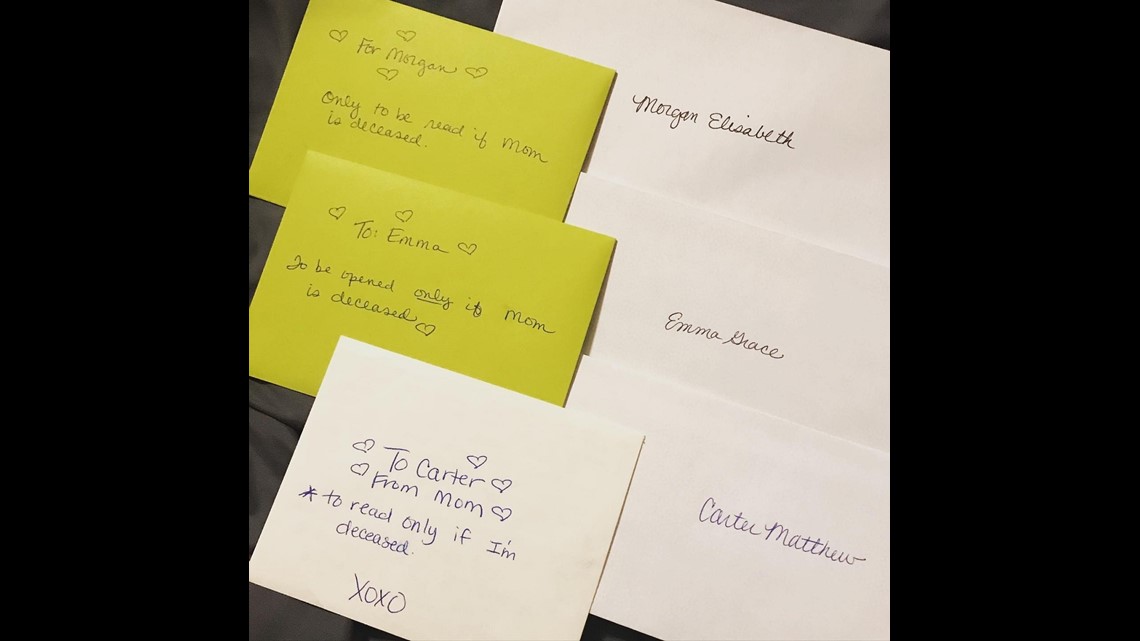 For Morgan
Only to be read if Mom
is deceased.
Morgan Elisabeth
To: Emma
To be opened only if Mom
is deceased
Emma Grace
To Carter
From Mom
* to read only if I'm
deceased.
XOXO
Carter Matthew